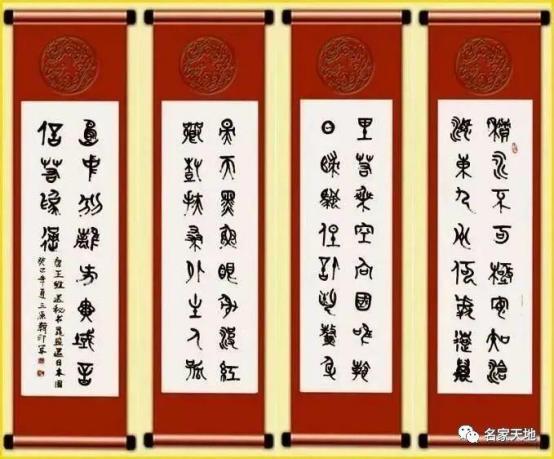 積水不可極安知滄
海東九州何處遠萬
里若乘空向國唯看
日歸帆但信風鰲身
映天黑魚眼射波紅
鄉樹扶桑外主人孤
島中別離方異域音
信若為通
唐王維送秘書晁監還日本國
癸巳年夏三原
名家天地